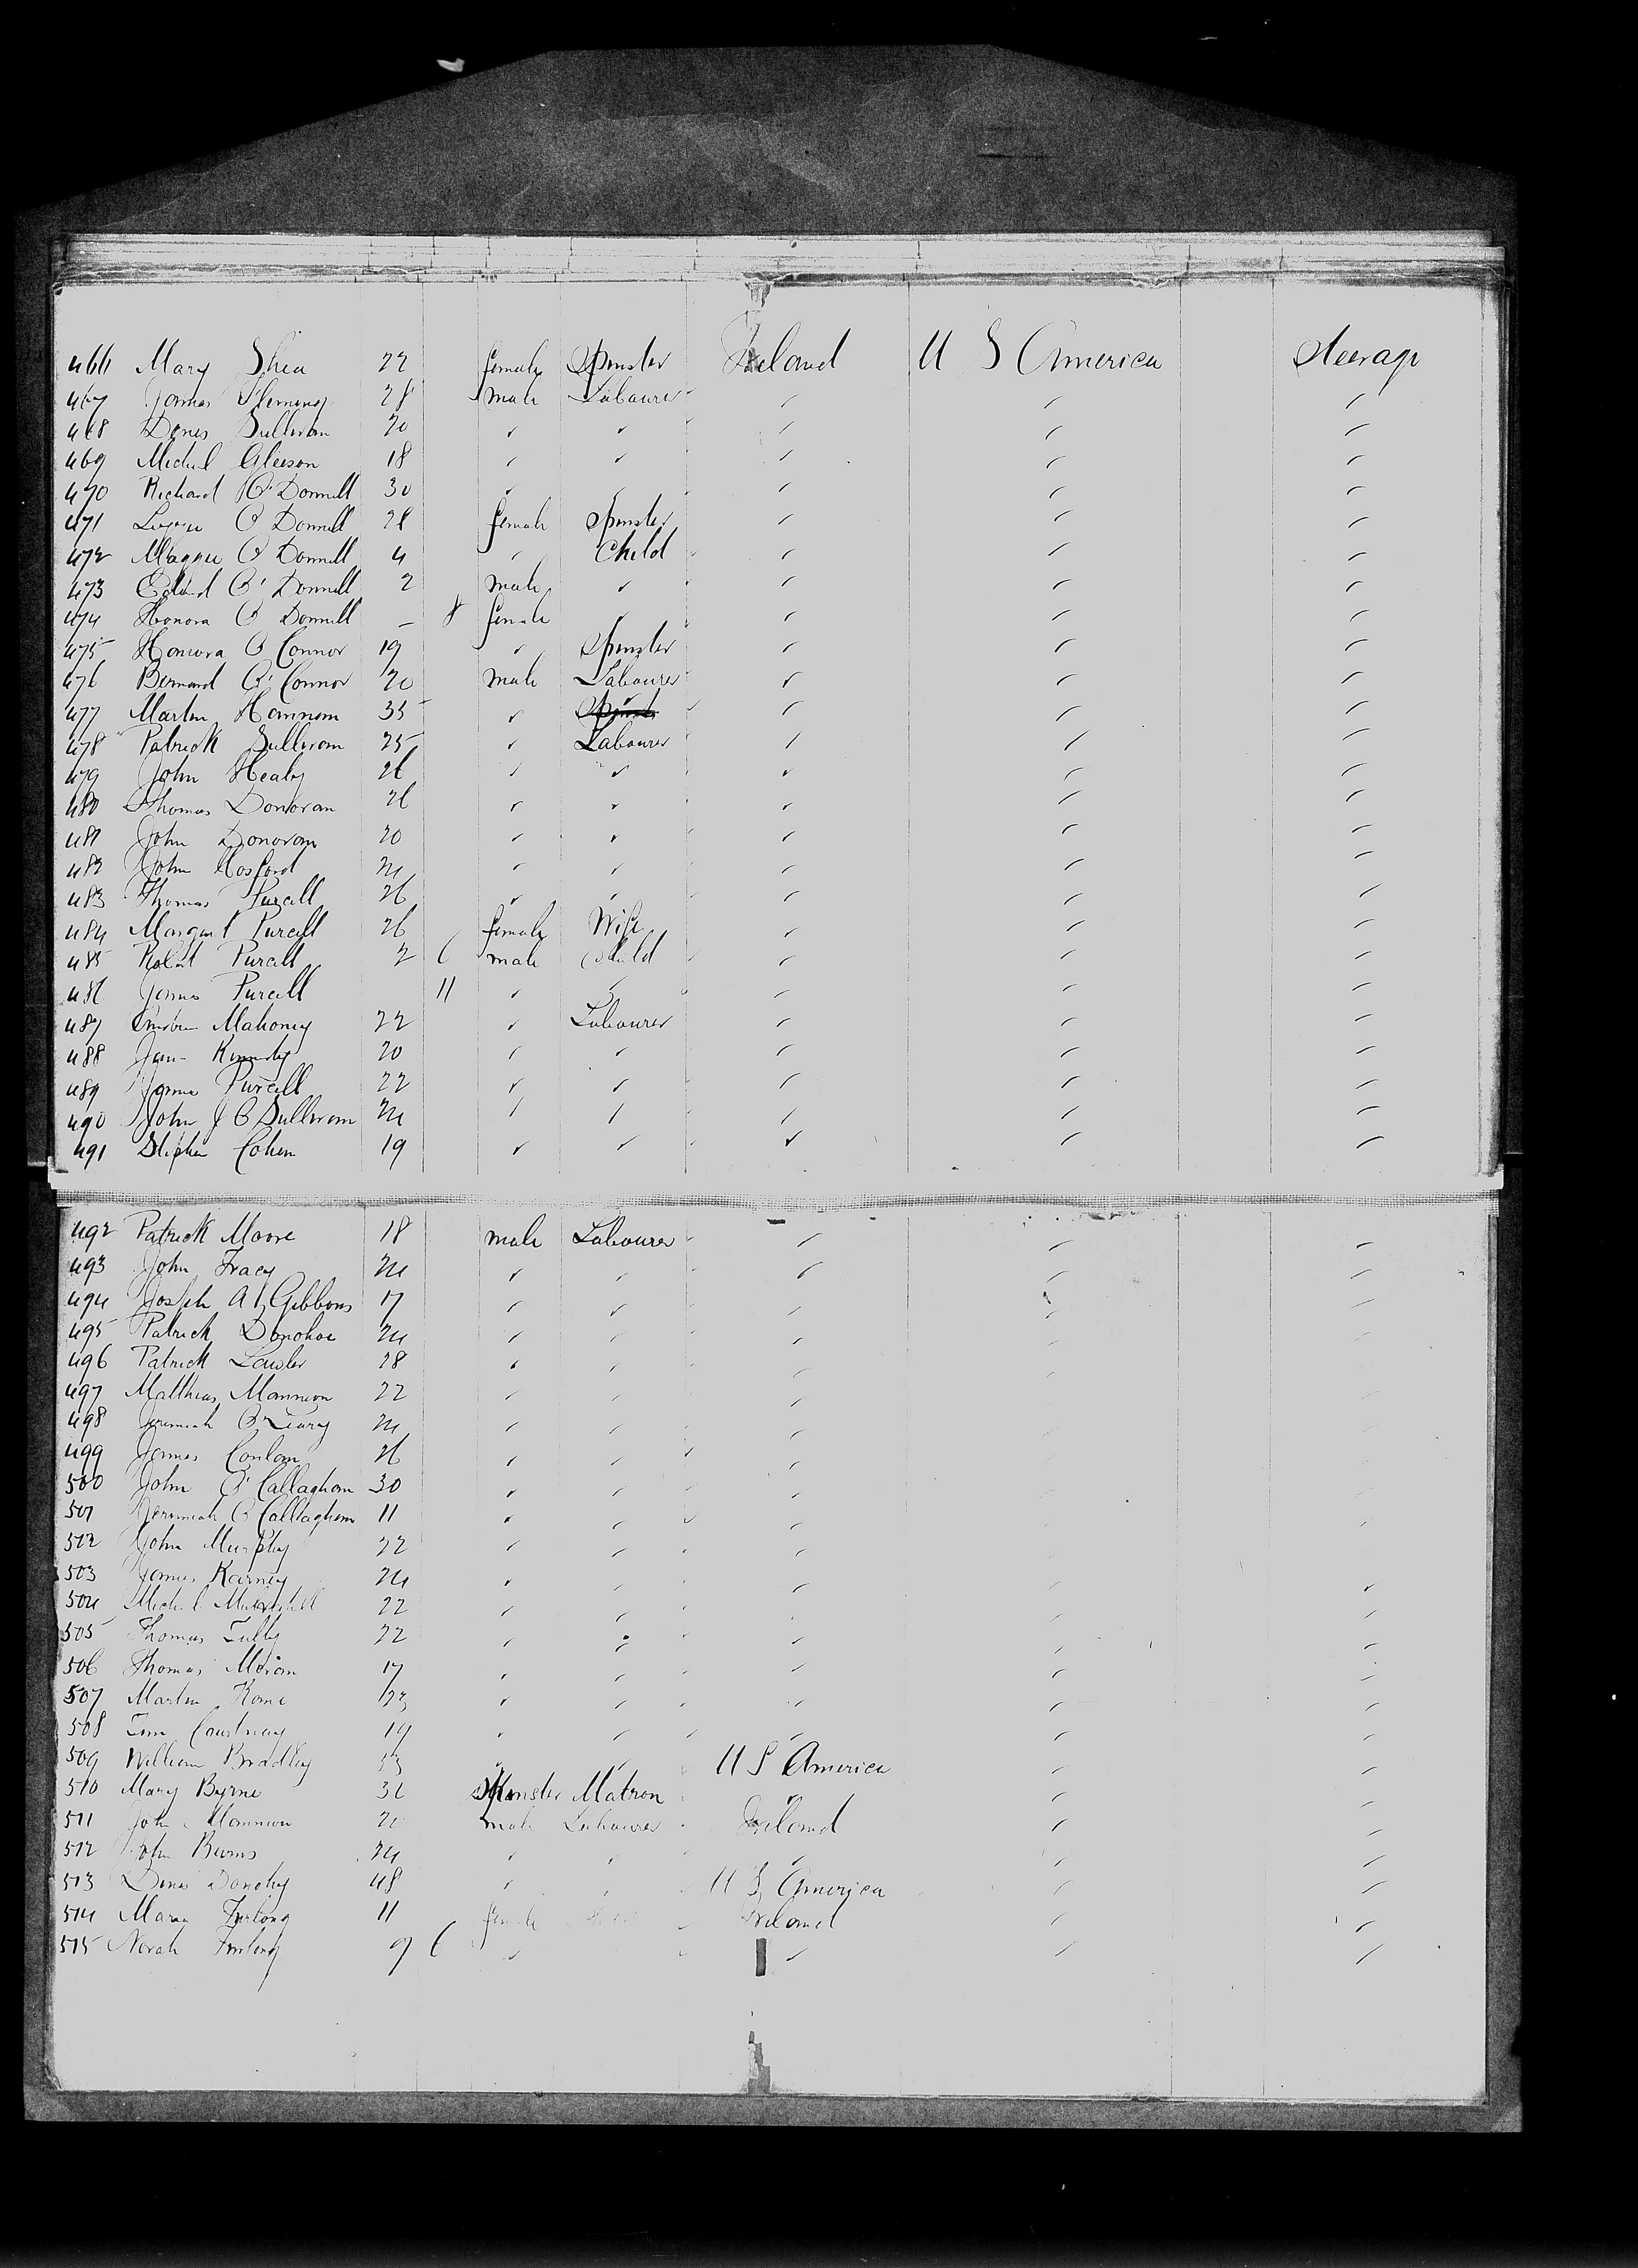 466 Mary Shea 22 female Spinster Ireland U S America Steerage
467 James Fleming 28 male Labourer
468 Denis Sullivan 20 ✓ ✓
469 Michael Gleeson 18
470 Richard O'Donnell 30
471 O Donnell 28 female Spinster
472 Maggie O Donnell 4 Child
473 Edwd O'Donnell 2 male
474 Honora O Donnell - 8 female
475 Honora O Connor 19 Spinster
476 Bernard O'Connor 20 male Labourer
477 Martin Hannon 35
478 Patrick Sullivan 25 Labourer
479 John Healy 26
480 Thomas Donovan 26
481 John Donovan 20
482 John Hosford 24
483 Thomas Purcell 26
484 Margaret Purcell 26 female Wife
485 Robert Purcell 2 6 male Child
486 James Purcell 11
487 Mahoney 22 Labourer
488 Kennedy 20
489 James Purcell 22
490 John J O Sullivan 24
491 Stephen Cohen 19
492 Patrick Moore 18 male Labourer
493 John Tracy 24
494 Joseph A Gibbons 17
495 Patrick Donohoe 24
496 Patrick Lawler 28
497 Matthias Mannion 22
498 Jeremiah O'Leary 24
499 James Conlon 26
500 John O'Callaghan 30
501 Jeremiah O Callaghan 11
502 John Murphy 22
503 James Karney 24
504 Michael 22
505 Thomas Tully 22
506 Thomas Moran 17
507 Martin 23
508 Tim Courtney 19
509 William Bradley U S America
510 Mary Byrne 36 Spinster Matron
511 John Mannion 20 male Labourer Ireland
512 John Burns 24
513 Denis Donohy 48 U S America
514 Mary Furlong 11 female Ireland
515 Norah Furlong 9 6